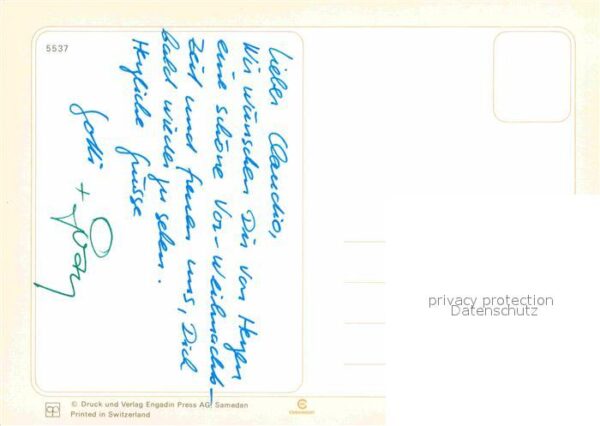 5537
Lieber Claudio,
Wir wünschen Dir von Herzen
eine schöne Vor-Weihnachts-
zeit und freuen uns, Dich
bald wieder zu sehen.
Herzliche Grüsse
Gotti +
© Druck und Verlag Engadin Press AG, Samedan
Printed in Switzerland
privacy protection
Datenschutz